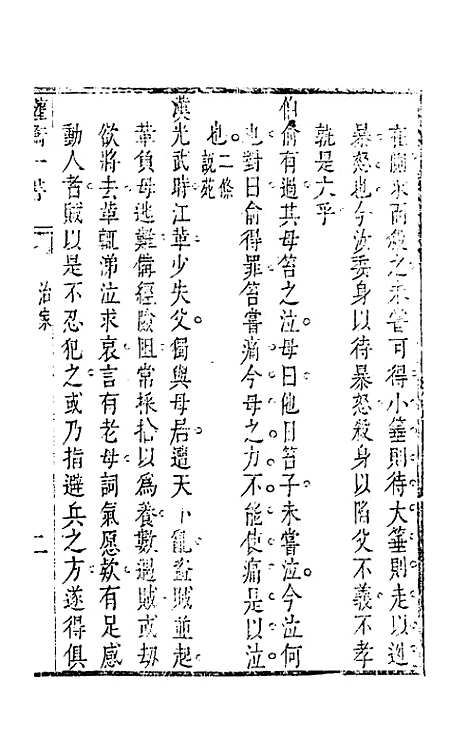 在側求而殺之未嘗可得小箠則待大箠則走以逃
暴怒也今汝委身以待暴怒殺身以陷父不義不孝
孰是大乎
伯俞有過其母笞之泣母曰他日笞子未嘗泣今泣何
也對曰俞得罪笞嘗痛今母之力不能使痛是以泣
也二條說苑
漢光武時江革少失父獨與母居遭天下亂盜賊並起
革負母逃難備經險阻常採拾以為養數遇賊或劫
欲將去革輒涕泣求哀言有老母詞氣愿欵有足感
動人者賊以是不忍犯之或乃指避兵之方遂得俱
治家
二